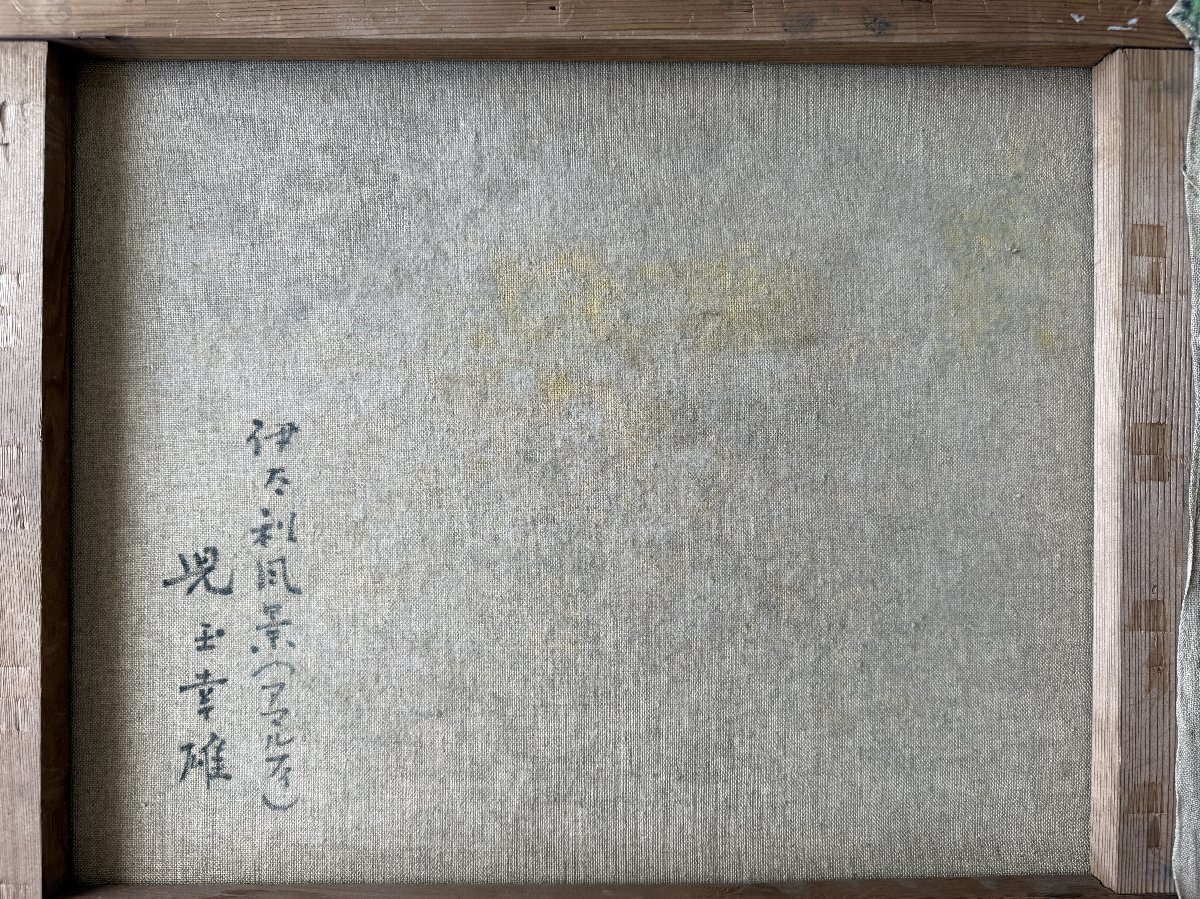 伊太利風景(アマルフィ)
児玉幸雄